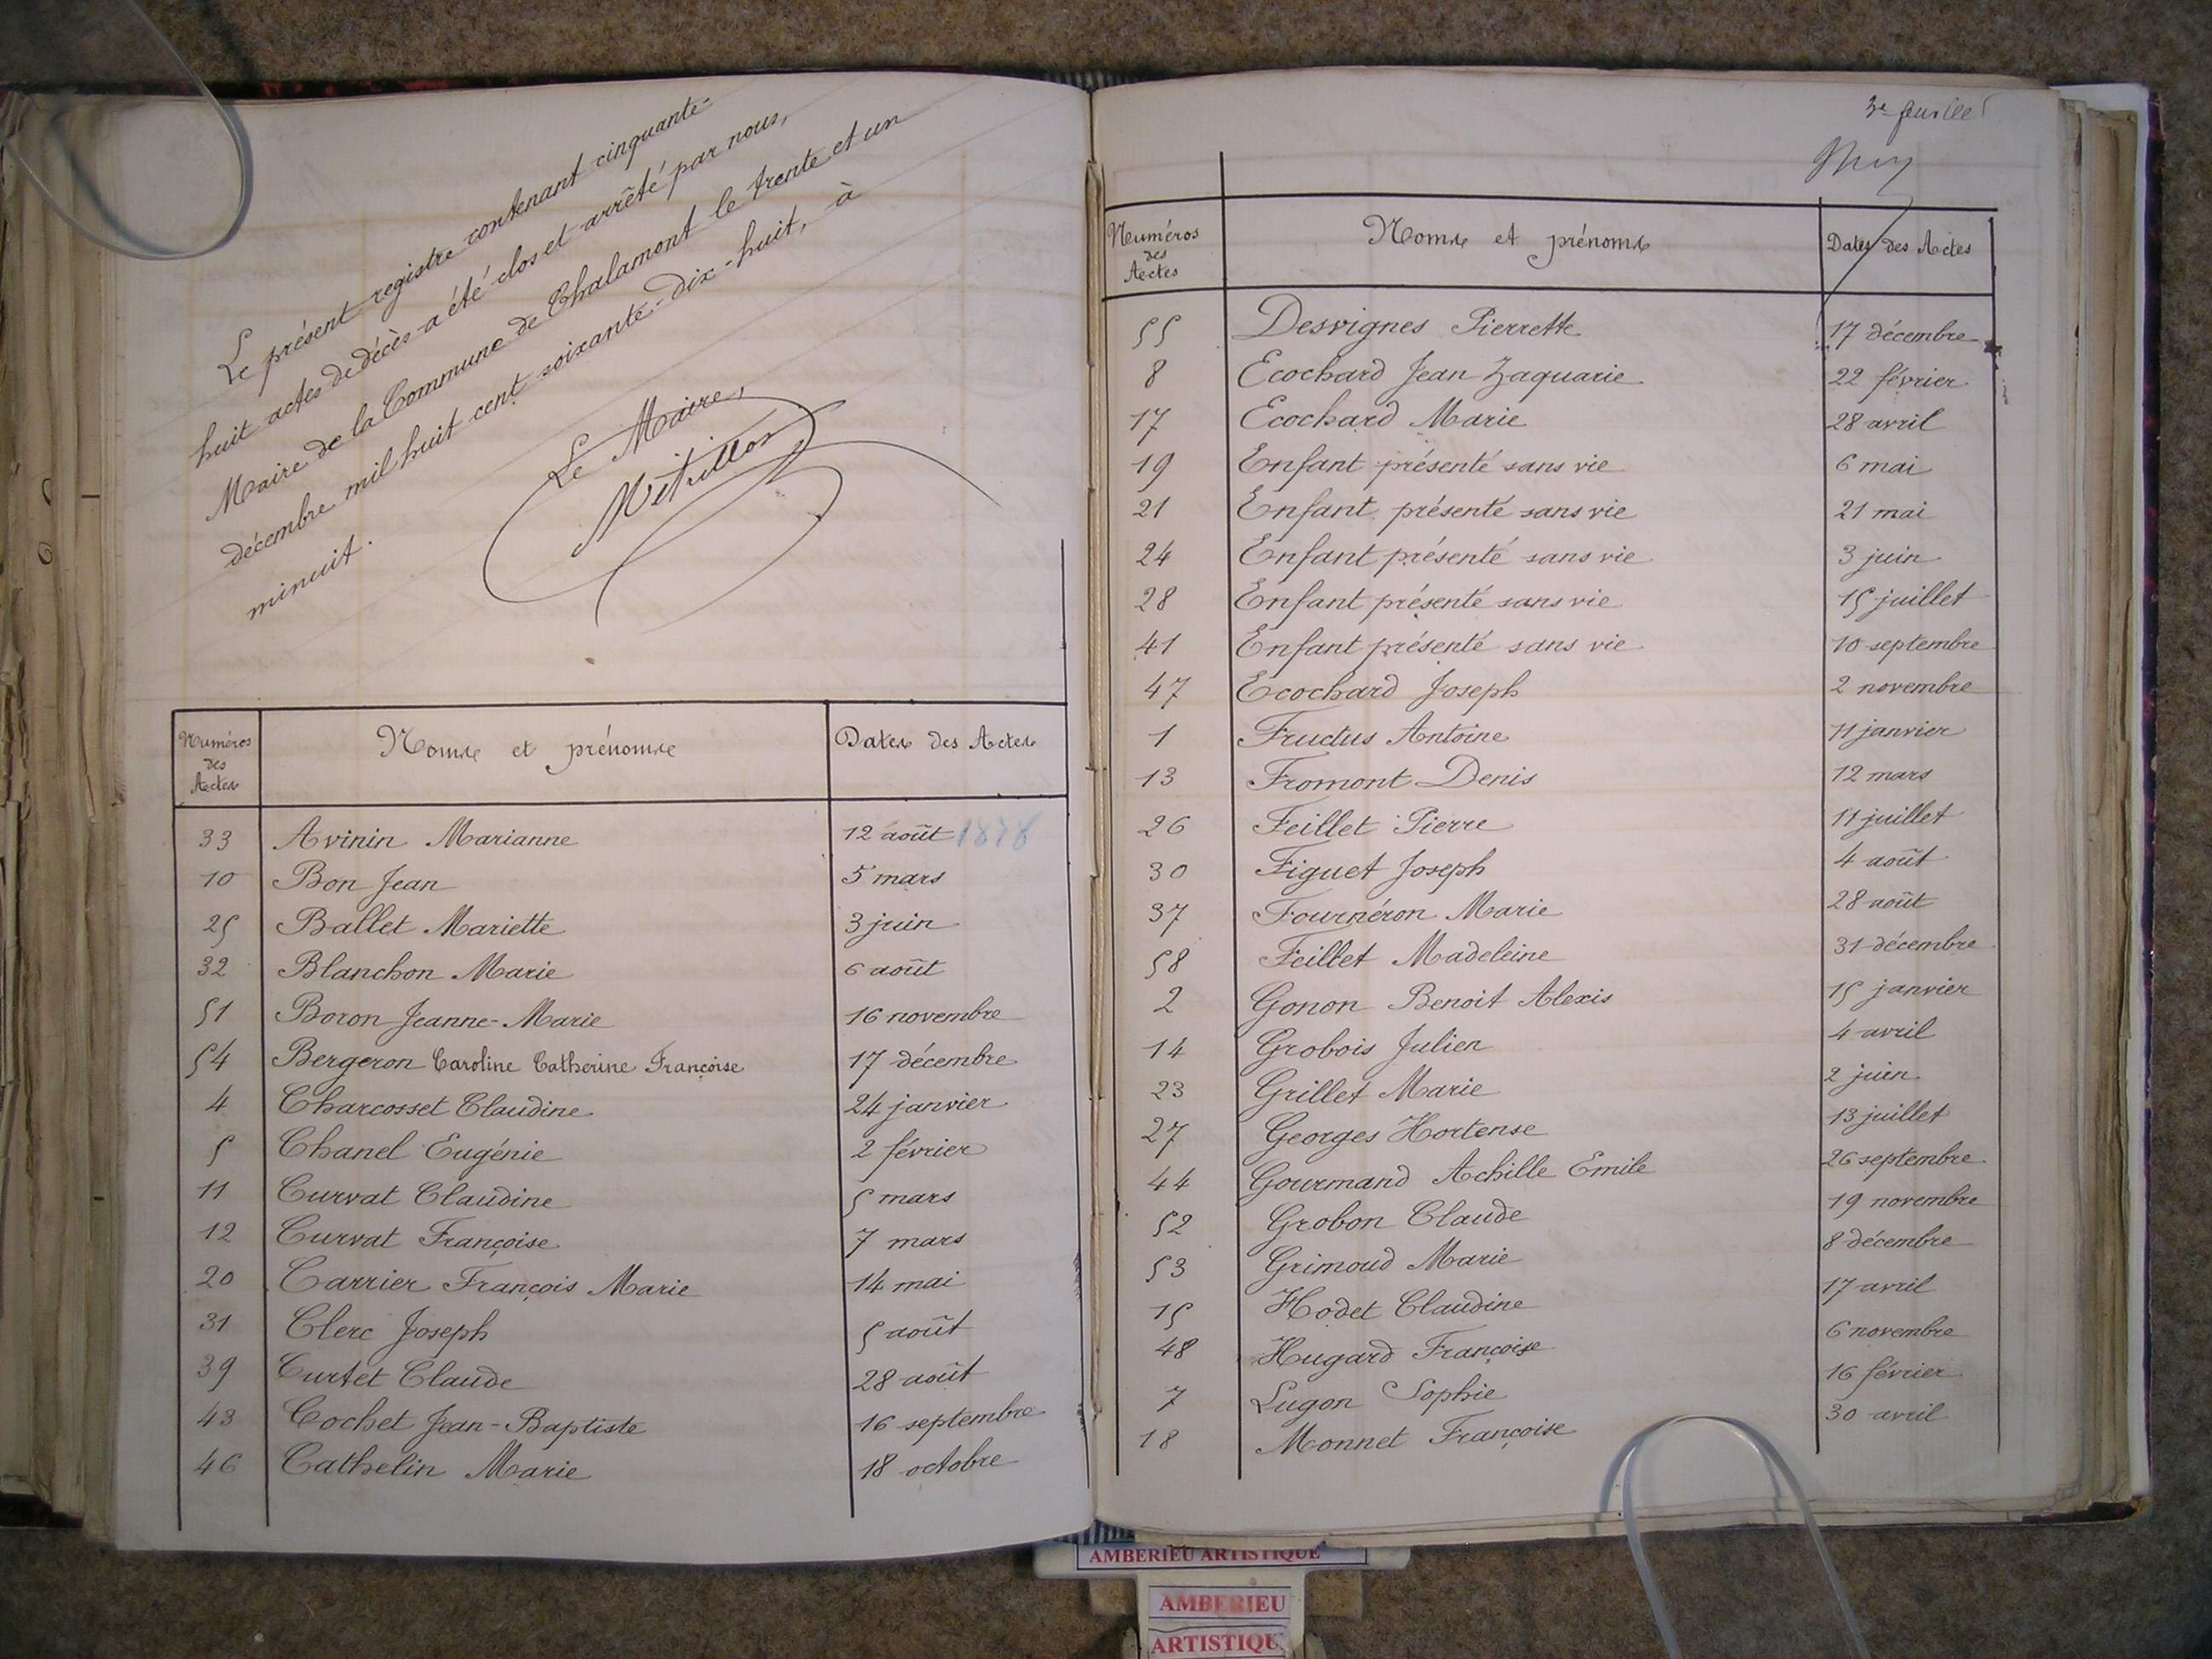 Le présent registre contenant cinquante-
huit actes de décès a été clos et arrêté par nous,
Maire de la Commune de Chalamont le trente et un
décembre mil huit cent soixante-dix-huit, à
minuit.
Le Maire,
Numéros des Actes Noms et prénoms Dates des Actes
33 Avinin Marianne 12 août 1878
10 Bon Jean 5 mars
25 Ballet Mariette 3 juin
32 Blanchon Marie 6 août
51 Boron Jeanne-Marie 16 novembre
54 Bergeron Caroline Catherine Françoise 17 décembre
4 Charcosset Claudine 24 janvier
5 Chanel Eugénie 2 février
11 Curvat Claudine 5 mars
12 Curvat Françoise 7 mars
20 Carrier François Marie 14 mai
31 Clerc Joseph 5 août
39 Curtet Claude 28 août
43 Cochet Jean-Baptiste 16 septembre
46 Cathelin Marie 18 octobre
3e feuillet
Numéros des Actes Noms et prénoms Dates des Actes
55 Desvignes Pierrette 17 décembre
8 Ecochard Jean Zaquarie 22 février
17 Ecochard Marie 28 avril
19 Enfant présenté sans vie 6 mai
21 Enfant présenté sans vie 21 mai
24 Enfant présenté sans vie 3 juin
28 Enfant présenté sans vie 15 juillet
41 Enfant présenté sans vie 10 septembre
47 Ecochard Joseph 2 novembre
1 Fructus Antoine 11 janvier
13 Fromont Denis 12 mars
26 Feillet Pierre 11 juillet
30 Figuet Joseph 4 août
37 Fournéron Marie 28 août
58 Feillet Madeleine 31 décembre
2 Gonon Benoit Alexis 15 janvier
14 Grobois Julien 4 avril
23 Grillet Marie 2 juin
27 Georges Hortense 13 juillet
44 Gourmand Achille Emile 26 septembre
52 Grobon Claude 19 novembre
53 Grimoud Marie 8 décembre
15 Hodet Claudine 17 avril
48 Hugard Françoise 6 novembre
7 Lugon Sophie 16 février
18 Monnet Françoise 30 avril
AMBERIEU ARTISTIQUE
AMBERIEU
ARTISTIQU